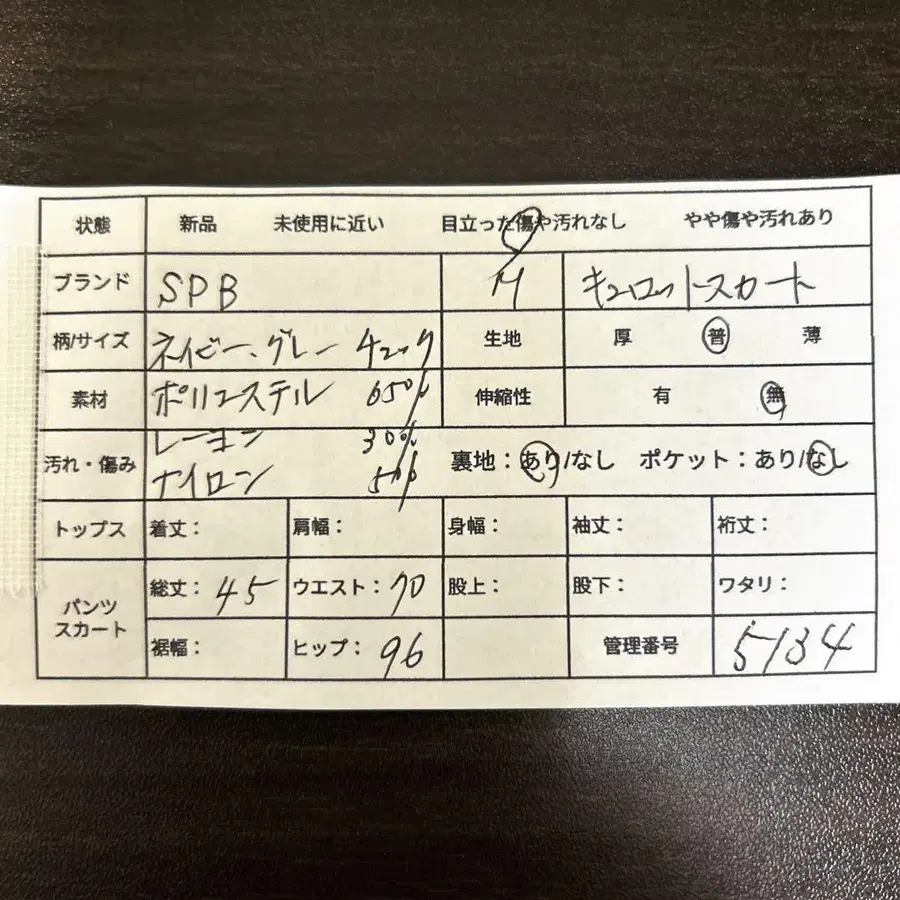 状態 新品 未使用に近い 目立った傷や汚れなし やや傷や汚れあり
ブランド SPB M キュロットスカート
柄/サイズ ネイビー、グレー チェック 生地 厚 普 薄
素材 ポリエステル 65% 伸縮性 有 無
レーヨン 30%
汚れ・傷み ナイロン 5% 裏地：あり/なし ポケット：あり/なし
トップス 着丈： 肩幅： 身幅： 袖丈： 裄丈：
パンツ スカート 総丈：45 ウエスト：70 股上： 股下： ワタリ：
裾幅： ヒップ：96 管理番号 5134